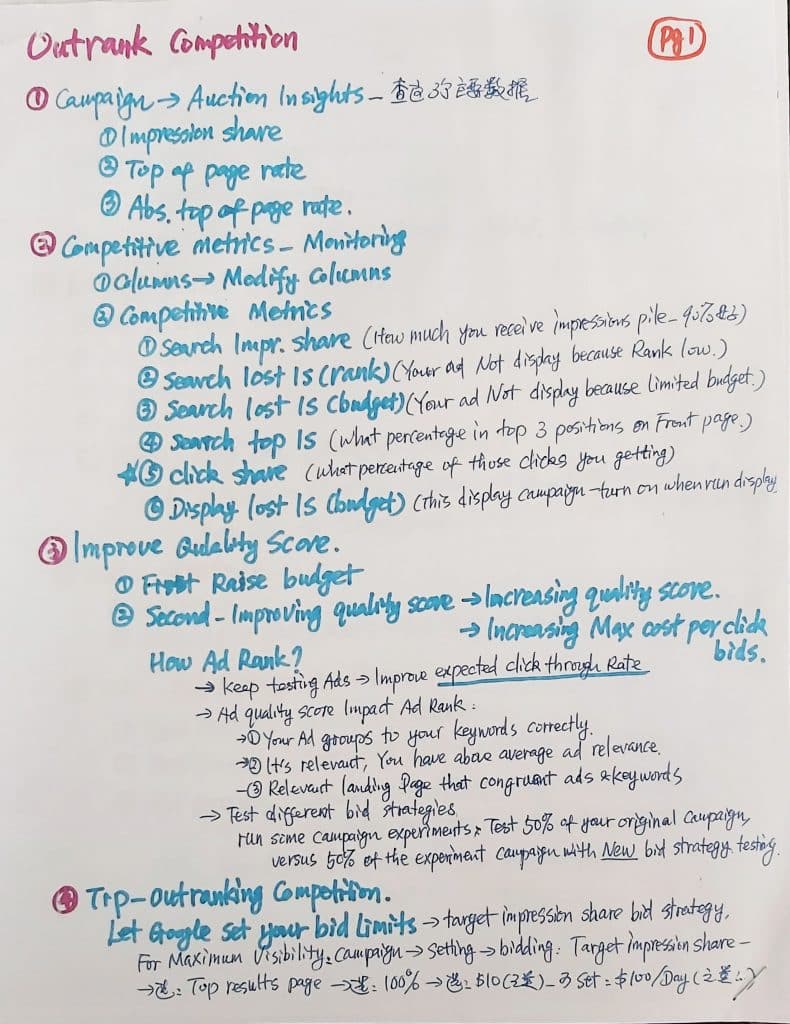 Outrank Competition
Pg 1
① Campaign → Auction Insights – 查
① Impression share
② Top of page rate
③ Abs. top of page rate.
② Competitive metrics – Monitoring
① Columns → Modify Columns
② Competitive Metrics
① Search Impr. share (How much you receive impressions pile – 90%
② Search lost IS (rank) (Your ad Not display because Rank low.)
③ Search lost IS (budget) (Your ad Not display because limited budget.)
④ Search top IS (What percentage in top 3 positions on Front page.)
☆⑤ click share (What percentage of those clicks you getting)
⑥ Display lost IS (budget) (this display campaign – turn on when run display
③ Improve Quality Score.
① First Raise budget
② Second – Improving quality score → Increasing quality score.
→ Increasing Max cost per click bids.
How Ad Rank?
→ Keep testing Ads → Improve expected click through Rate
→ Ad quality score Impact Ad Rank:
→① Your Ad groups to your keywords correctly.
→② It's relevant, You have above average ad relevance.
–③ Relevant landing Page that congruent ads & keywords
→ Test different bid strategies
run some campaign experiments: Test 50% of your original campaign,
versus 50% of the experiment campaign with New bid strategy testing.
④ Trp – outranking Competition.
Let Google set your bid Limits → target impression share bid strategy.
For Maximum Visibility: campaign → setting → bidding: Target impression share –
→选: Top results page →选: 100% →选: $10 – Set: $100/Day